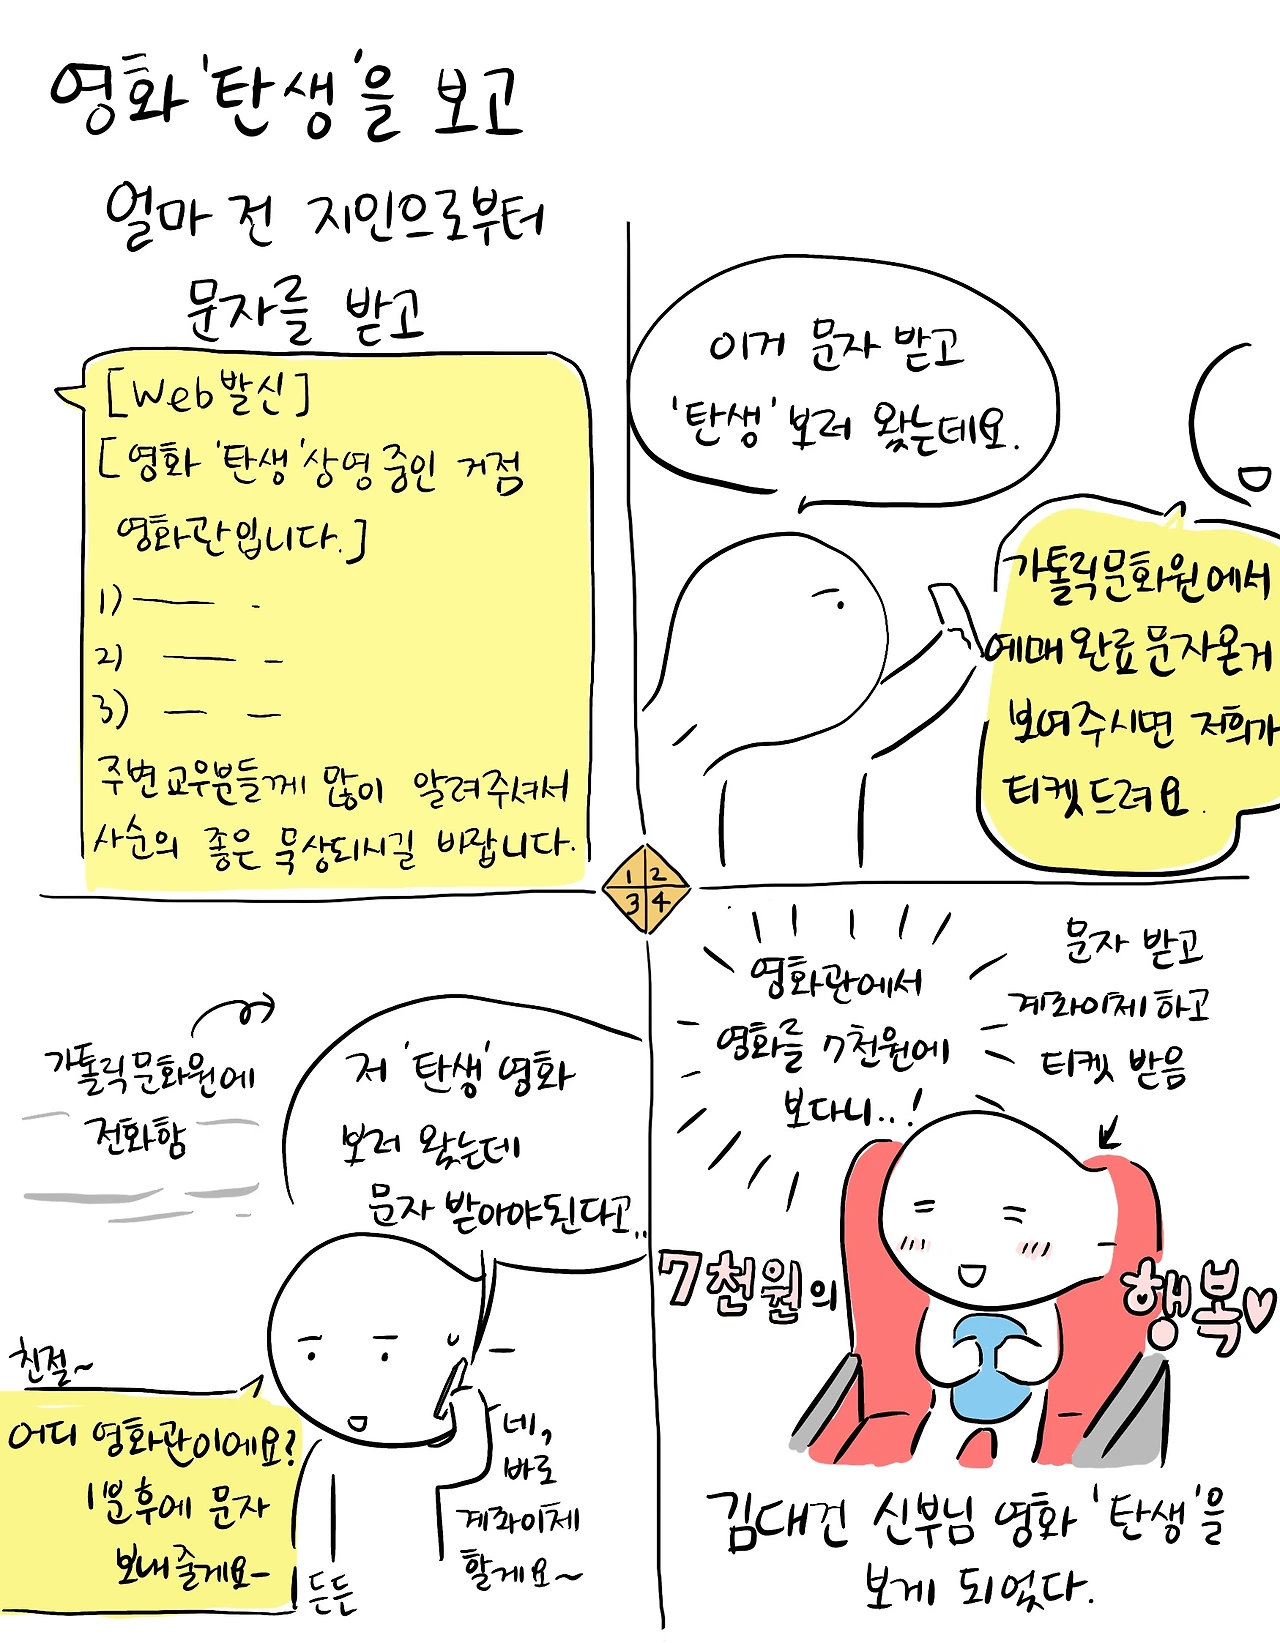 영화 '탄생'을 보고
얼마 전 지인으로부터
문자를 받고
[Web발신]
[영화 '탄생' 상영중인 거점
영화관입니다.]
1)
2)
3)
주변 교우분들께 많이 알려주셔서
사순의 좋은 묵상되시길 바랍니다.
이거 문자 받고
'탄생' 보러 왔는데요.
가톨릭문화원에서
예매 완료 문자온거
보여주시면 저희가
티켓드려요.
1 2
3 4
가톨릭문화원에
전화함
저 '탄생' 영화
보러 왔는데
문자 받아야된다고..
친절~
어디 영화관이에요?
1분후에 문자
보내줄게요-
네,
바로
계좌이체
할게요~
든든
영화관에서
영화를 7천원에
보다니..!
문자 받고
계좌이체하고
티켓 받음
7천원의
행복♡
김대건 신부님 영화 '탄생'을
보게 되었다.